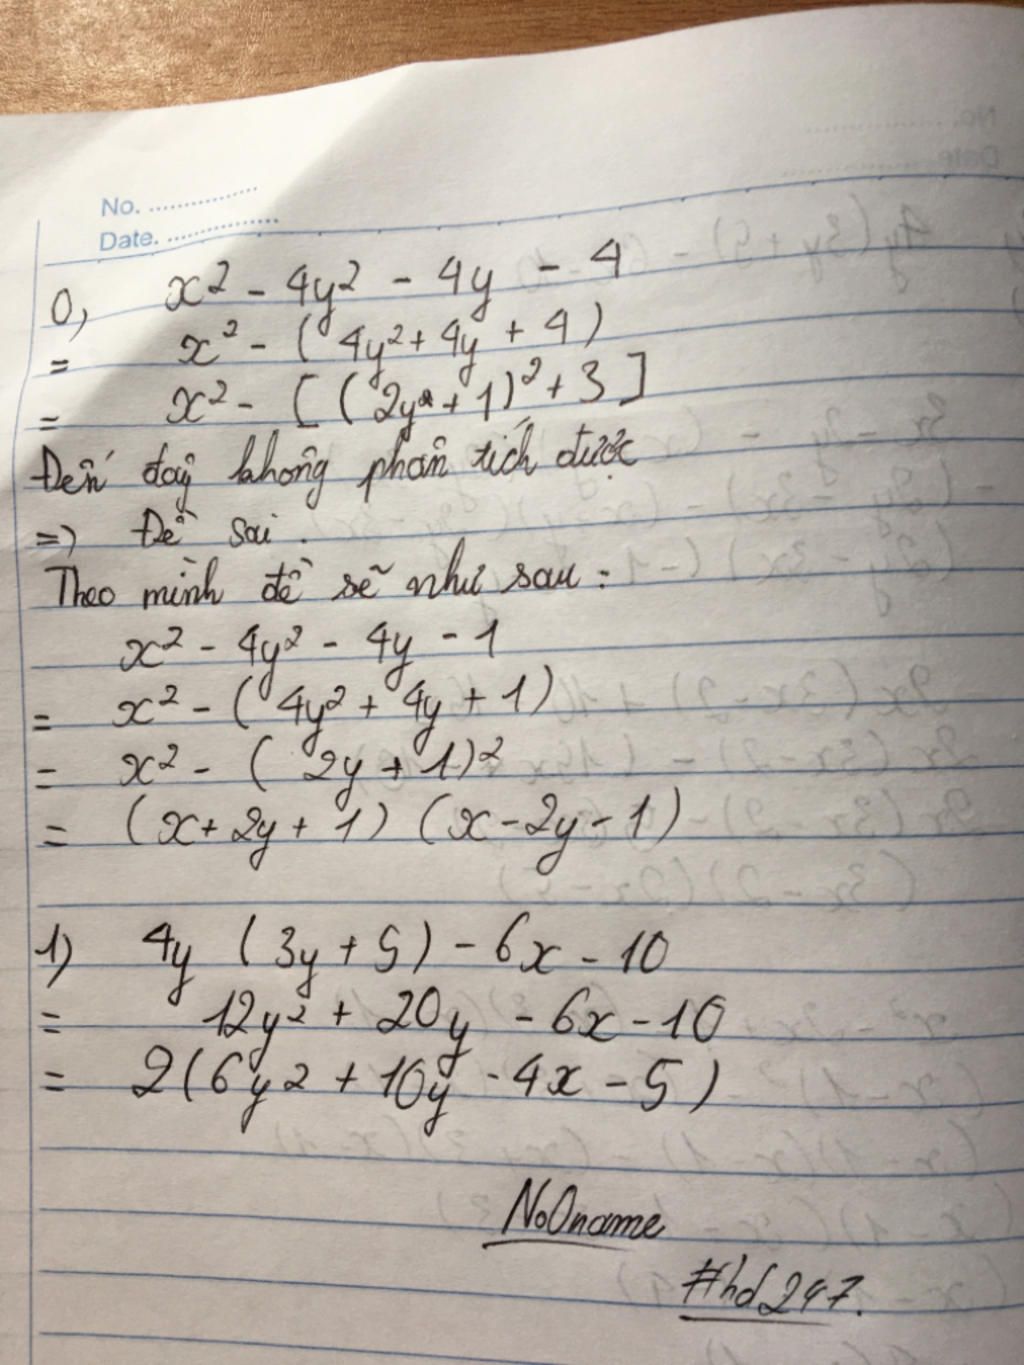 No. ..................
Date. ..................
0, x² - 4y² - 4y - 4
= x² - ( 4y² + 4y + 4 )
= x² - [ ( 2y + 1 )² + 3 ]
Đến đây không phân tích được
=> Đề sai.
Theo mình đề sẽ như sau :
x² - 4y² - 4y - 1
= x² - ( 4y² + 4y + 1 )
= x² - ( 2y + 1 )²
= (x + 2y + 1) (x - 2y - 1)
1) 4y ( 3y + 5 ) - 6x - 10
= 12y² + 20y - 6x - 10
= 2 ( 6y² + 10y - 4x - 5 )
NoOname
#hd247.